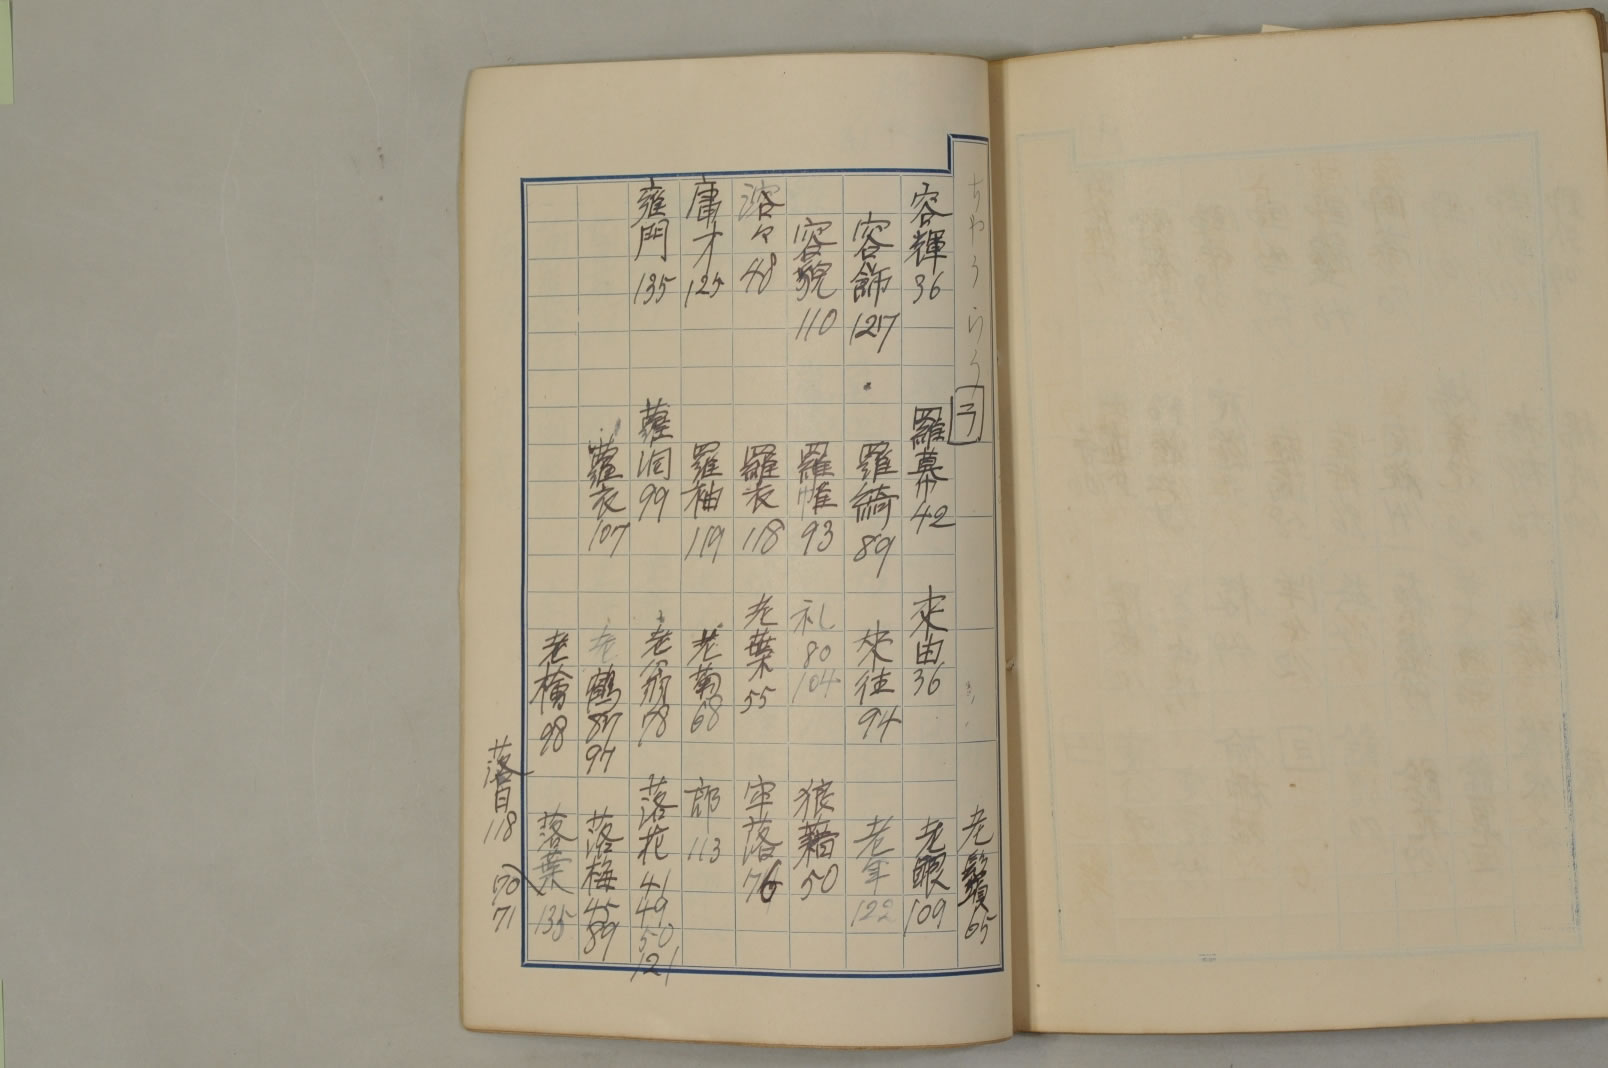 容輝 36
容飾 127
容貌 110
溶々 48
庸才 125
雍門 135
ラ
羅幕 42
羅綺 89
羅帷 93
羅衣 118
羅袖 119
蘿洞 99
蘿衣 107
来由 36
来往 94
礼 80 104
老葉 55
老菊 68
老翁 78
老鶴 87 97
老檜 98
老鬢 65
老眼 109
老年 122
狼藉 50
牢落 76
郎 113
落花 41 49 50 121
落梅 45 89
落葉 135 70 71
落日 118